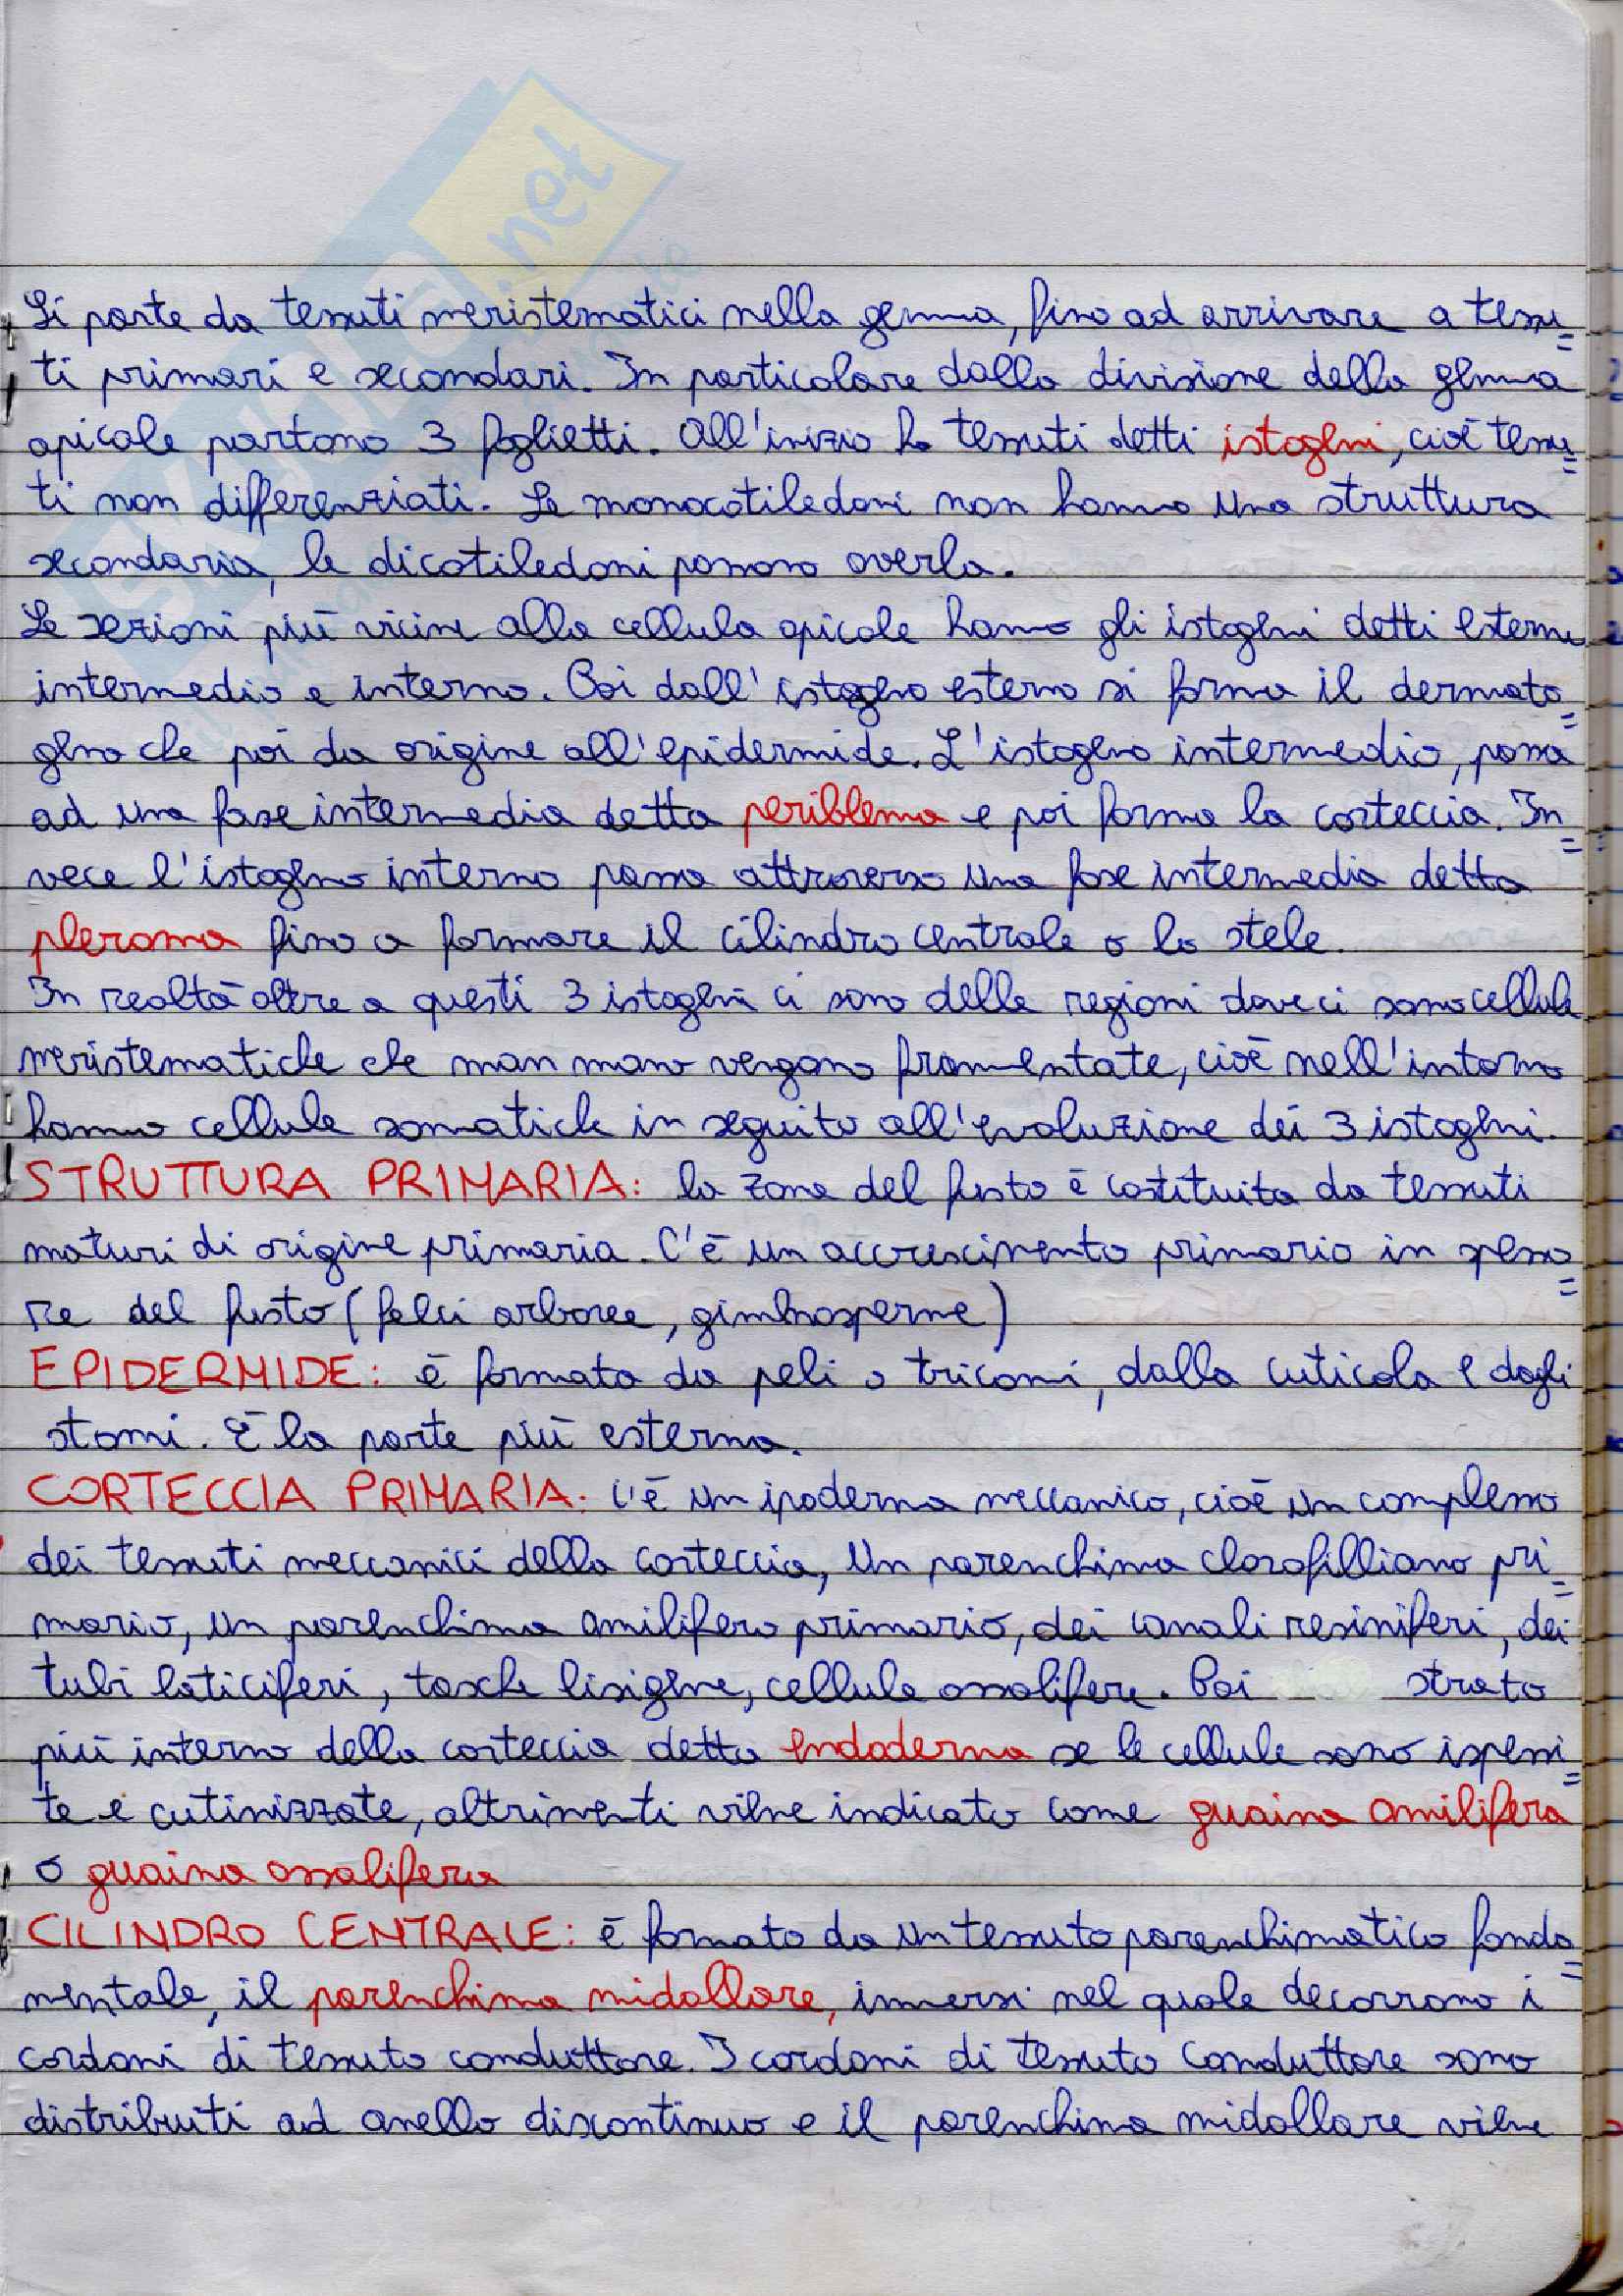 skuola.net
Si parte da tessuti meristematici nella gemma, fino ad arrivare a tessu=
ti primari e secondari. In particolare dalla divisione della gemma
apicale partono 3 foglietti. All'inizio ho tessuti detti istogeni, cioè tessu=
ti non differenziati. Le monocotiledoni non hanno una struttura
secondaria, le dicotiledoni possono averla.
Le sezioni più vicine alla cellula apicale hanno gli istogeni detti esterno
intermedio e interno. Poi dall'istogeno esterno si forma il dermato=
geno che poi da origine all'epidermide. L'istogeno intermedio, passa
ad una fase intermedia detta periblema e poi forma la corteccia. In=
vece l'istogeno interno passa attraverso una fase intermedia detta
pleroma fino a formare il cilindro centrale o la stele.
In realtà oltre a questi 3 istogeni ci sono delle regioni dove ci sono cellule
meristematiche che man mano vengono frammentate, cioè nell'intorno
hanno cellule somatiche in seguito all'evoluzione dei 3 istogeni.
STRUTTURA PRIMARIA: la zona del fusto è costituita da tessuti
maturi di origine primaria. C'è un accrescimento primario in spesso=
re del fusto (felci arboree, gimnosperme)
EPIDERMIDE: è formata da peli o tricomi, dalla cuticola e dagli
stomi. È la parte più esterna.
CORTECCIA PRIMARIA: c'è un ipoderma meccanico, cioè un complesso
dei tessuti meccanici della corteccia, un parenchima clorofilliano pri=
mario, un parenchima amilifero primario, dei canali resiniferi, dei
tubi laticiferi, tasche lisigene, cellule ossalifere. Poi strato
più interno della corteccia detto endoderma se le cellule sono ispessi=
te e cutinizzate, altrimenti viene indicato come guaina amilifera
o guaina ossalifera
CILINDRO CENTRALE: è formato da un tessuto parenchimatico fonda=
mentale, il parenchima midollare, immersi nel quale decorrono i
cordoni di tessuto conduttore. I cordoni di tessuto conduttore sono
distribuiti ad anello discontinuo e il parenchima midollare viene